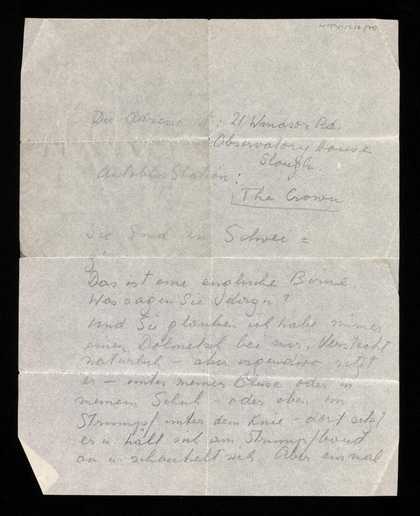 Die Adresse ist: 21 Windsor Rd.
Observatory House
Slough.
Autobus Station:
The Crown
Sie sind in Schwei =
Das ist eine englische
Was sagen Sie
Und Sie glauben ich habe immer
einen Dolmetsch bei mir. Versteckt
natürlich – aber irgendwo sitzt
er – unter meiner Bluse oder in
meinem Schuh – oder oben im
Strumpf unter dem Knie – dort sitzt
er u. hält sich am Strumpfband
an u. schaukelt sich. Aber einmal